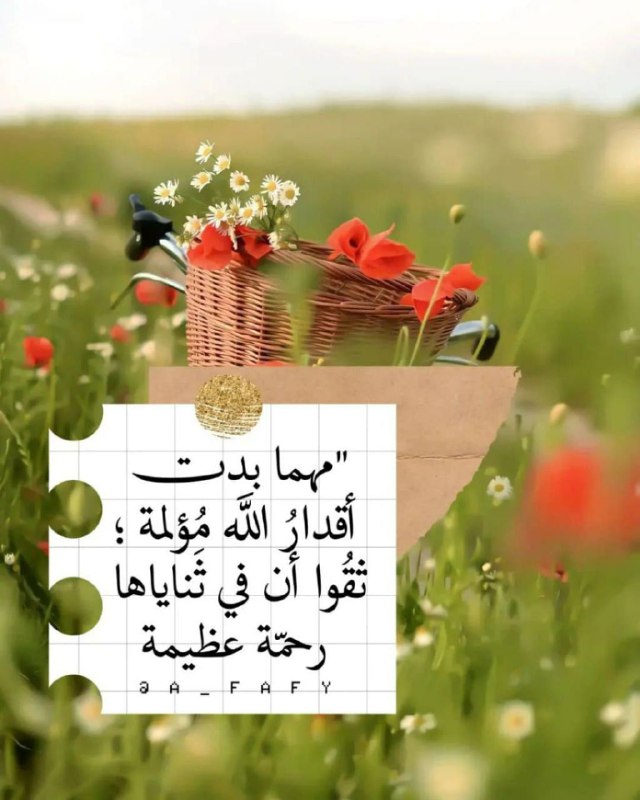 "مهما بدت
أقدارُ اللَّه مُؤلمة ؛
ثقُوا أن في ثَناياها
رحمّة عظيمة
@A_FAFY